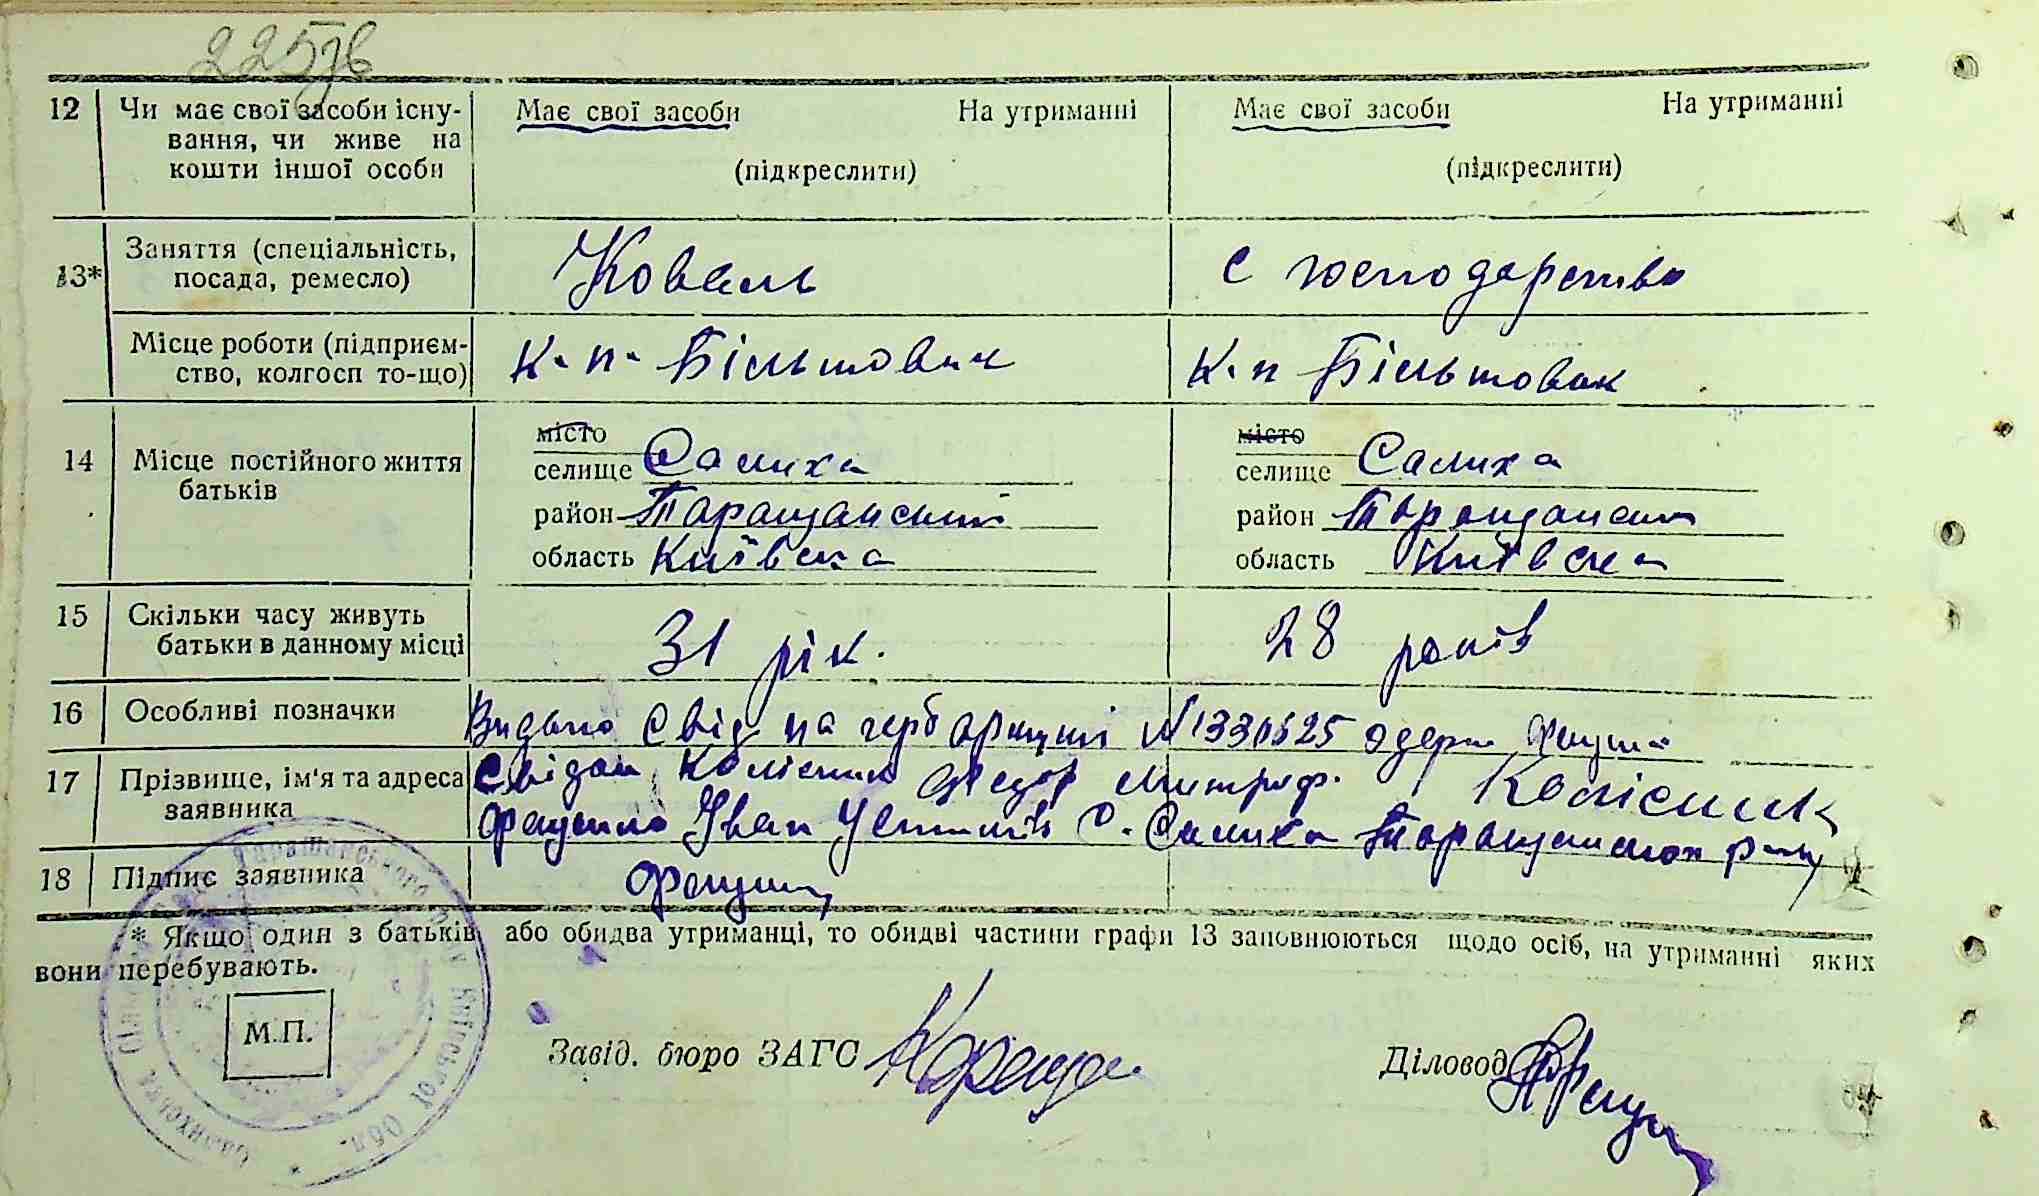 225зв
12 Чи має свої засоби існу- Має свої засоби На утриманні Має свої засоби На утриманні
вання, чи живе на
кошти іншої особи (підкреслити) (підкреслити)
13* Заняття (спеціальність, Коваль С господарство
посада, ремесло)
Місце роботи (підприєм- К. п. Більшовик К. п Більшовик
ство, колгосп то-що)
14 Місце постійного життя місто місто
батьків селище Салиха селище Салиха
район Таращанський район Таращанский
область Київська область Київска
15 Скільки часу живуть 31 рік. 28 років
батьки в данному місці
16 Особливі позначки Видано Свід на герб
17 Прізвище, ім'я та адреса Свідок Колісник Федор Митроф. Колісник
заявника Іван Устимів С. Салиха
18 Підпис заявника
* Якщо один з батьків або обидва утриманці, то обидві частини графи 13 заповнюються щодо осіб, на утриманні яких
вони перебувають.
М.П.
Завід. бюро ЗАГС Діловод
Таращанського р-ну Київської Обл.